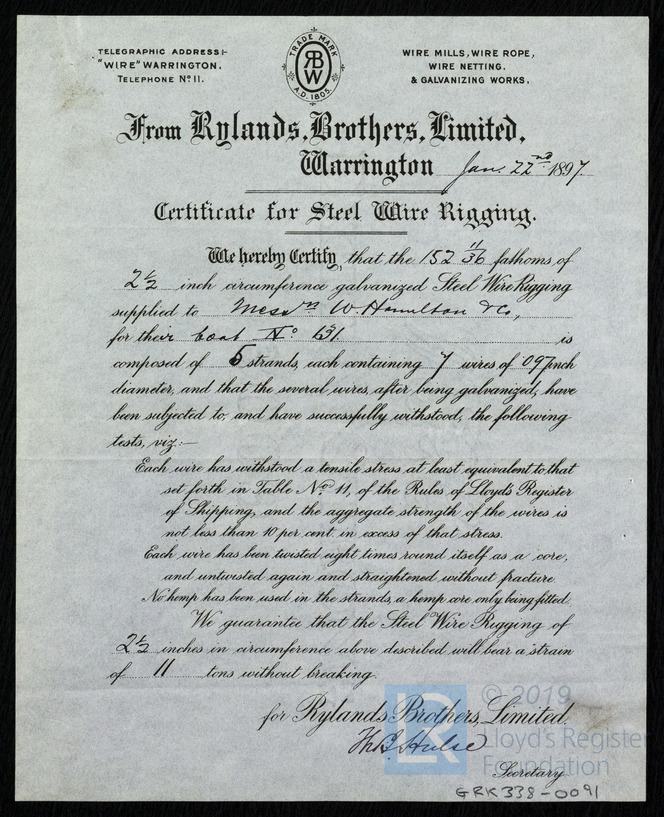 TELEGRAPHIC ADDRESS:-
"WIRE" WARRINGTON.
TELEPHONE No 11.
TRADE MARK
RB
W
A.D. 1805.
WIRE MILLS, WIRE ROPE,
WIRE NETTING.
& GALVANIZING WORKS.
From Rylands, Brothers, Limited,
Warrington Jan. 22nd 1897
Certificate for Steel Wire Rigging.
We hereby Certify, that the 152 11/36 fathoms of
2 1/2 inch circumference galvanized Steel Wire Rigging
supplied to Messrs W. Hamilton & Co,
for their boat No 131. is
composed of 6 strands, each containing 7 wires of .097 inch
diameter, and that the several wires, after being galvanized, have
been subjected to, and have successfully withstood, the following
tests, viz:—
Each wire has withstood a tensile stress at least equivalent to that
set forth in Table No 11, of the Rules of Lloyd's Register
of Shipping, and the aggregate strength of the wires is
not less than 10 per cent. in excess of that stress.
Each wire has been twisted eight times round itself as a core,
and untwisted again and straightened without fracture.
No hemp has been used in the strands, a hemp core only being fitted.
We guarantee that the Steel Wire Rigging of
2 1/2 inches in circumference above described will bear a strain
of 11 tons without breaking.
for Rylands Brothers, Limited.
Hulse
Secretary
LR
© 2019
Lloyd's Register
Foundation
GRK338-0091